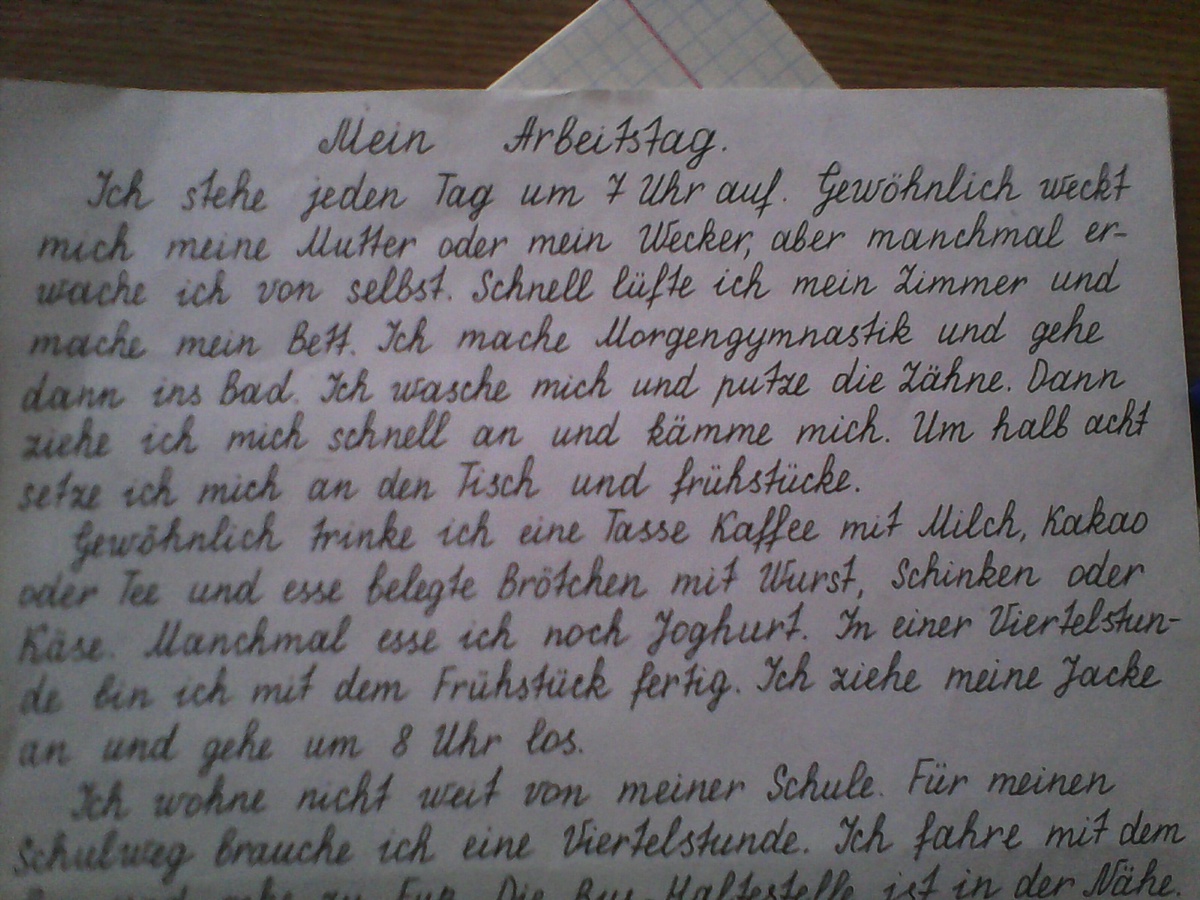 Mein Arbeitstag.
Ich stehe jeden Tag um 7 Uhr auf. Gewöhnlich weckt
mich meine Mutter oder mein Wecker, aber manchmal er-
wache ich von selbst. Schnell lüfte ich mein Zimmer und
mache mein Bett. Ich mache Morgengymnastik und gehe
dann ins Bad. Ich wasche mich und putze die Zähne. Dann
ziehe ich mich schnell an und kämme mich. Um halb acht
setze ich mich an den Tisch und frühstücke.
Gewöhnlich trinke ich eine Tasse Kaffee mit Milch, Kakao
oder Tee und esse belegte Brötchen mit Wurst, Schinken oder
Käse. Manchmal esse ich noch Joghurt. In einer Viertelstun-
de bin ich mit dem Frühstück fertig. Ich ziehe meine Jacke
an und gehe um 8 Uhr los.
Ich wohne nicht weit von meiner Schule. Für meinen
Schulweg brauche ich eine Viertelstunde. Ich fahre mit dem
Die Bus-Haltestelle ist in der Nähe.